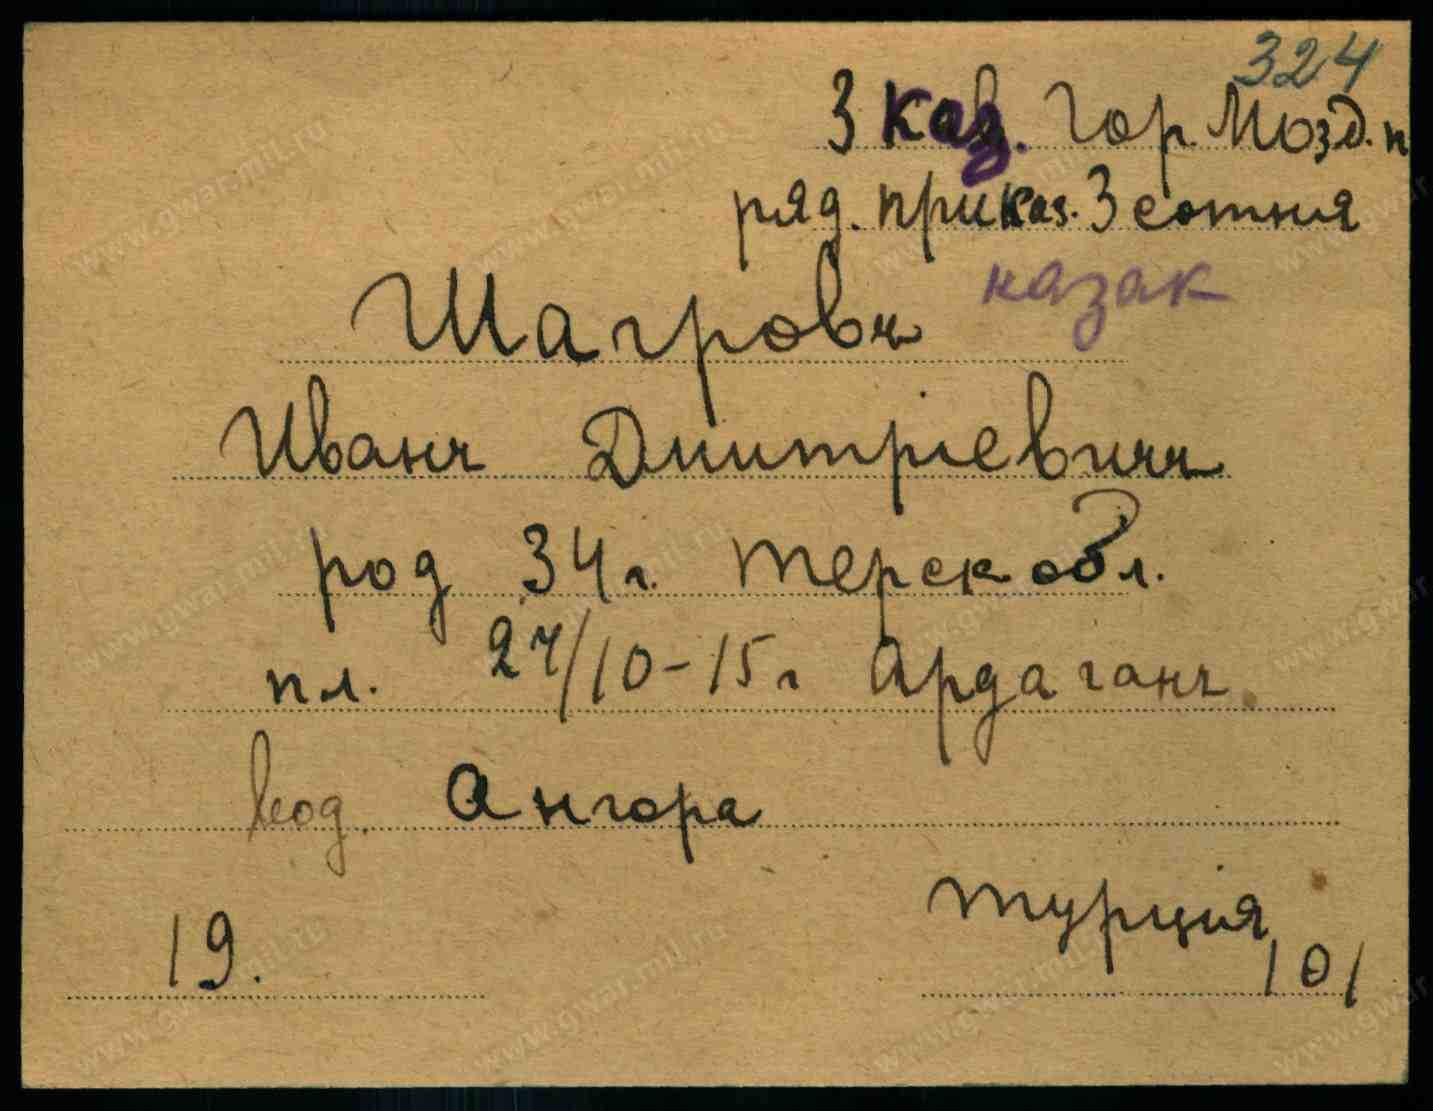 324
3 каз. Гор. Мозд. п
ряд. приказ. 3 сотня
казак
Шагровъ
Иванъ Дмитріевичъ
род 34 г. Терск обл.
пл. 27/10-15 г Ардаганъ
вод. Ангора
Турція
19.
101
www.gwar.mil.ru